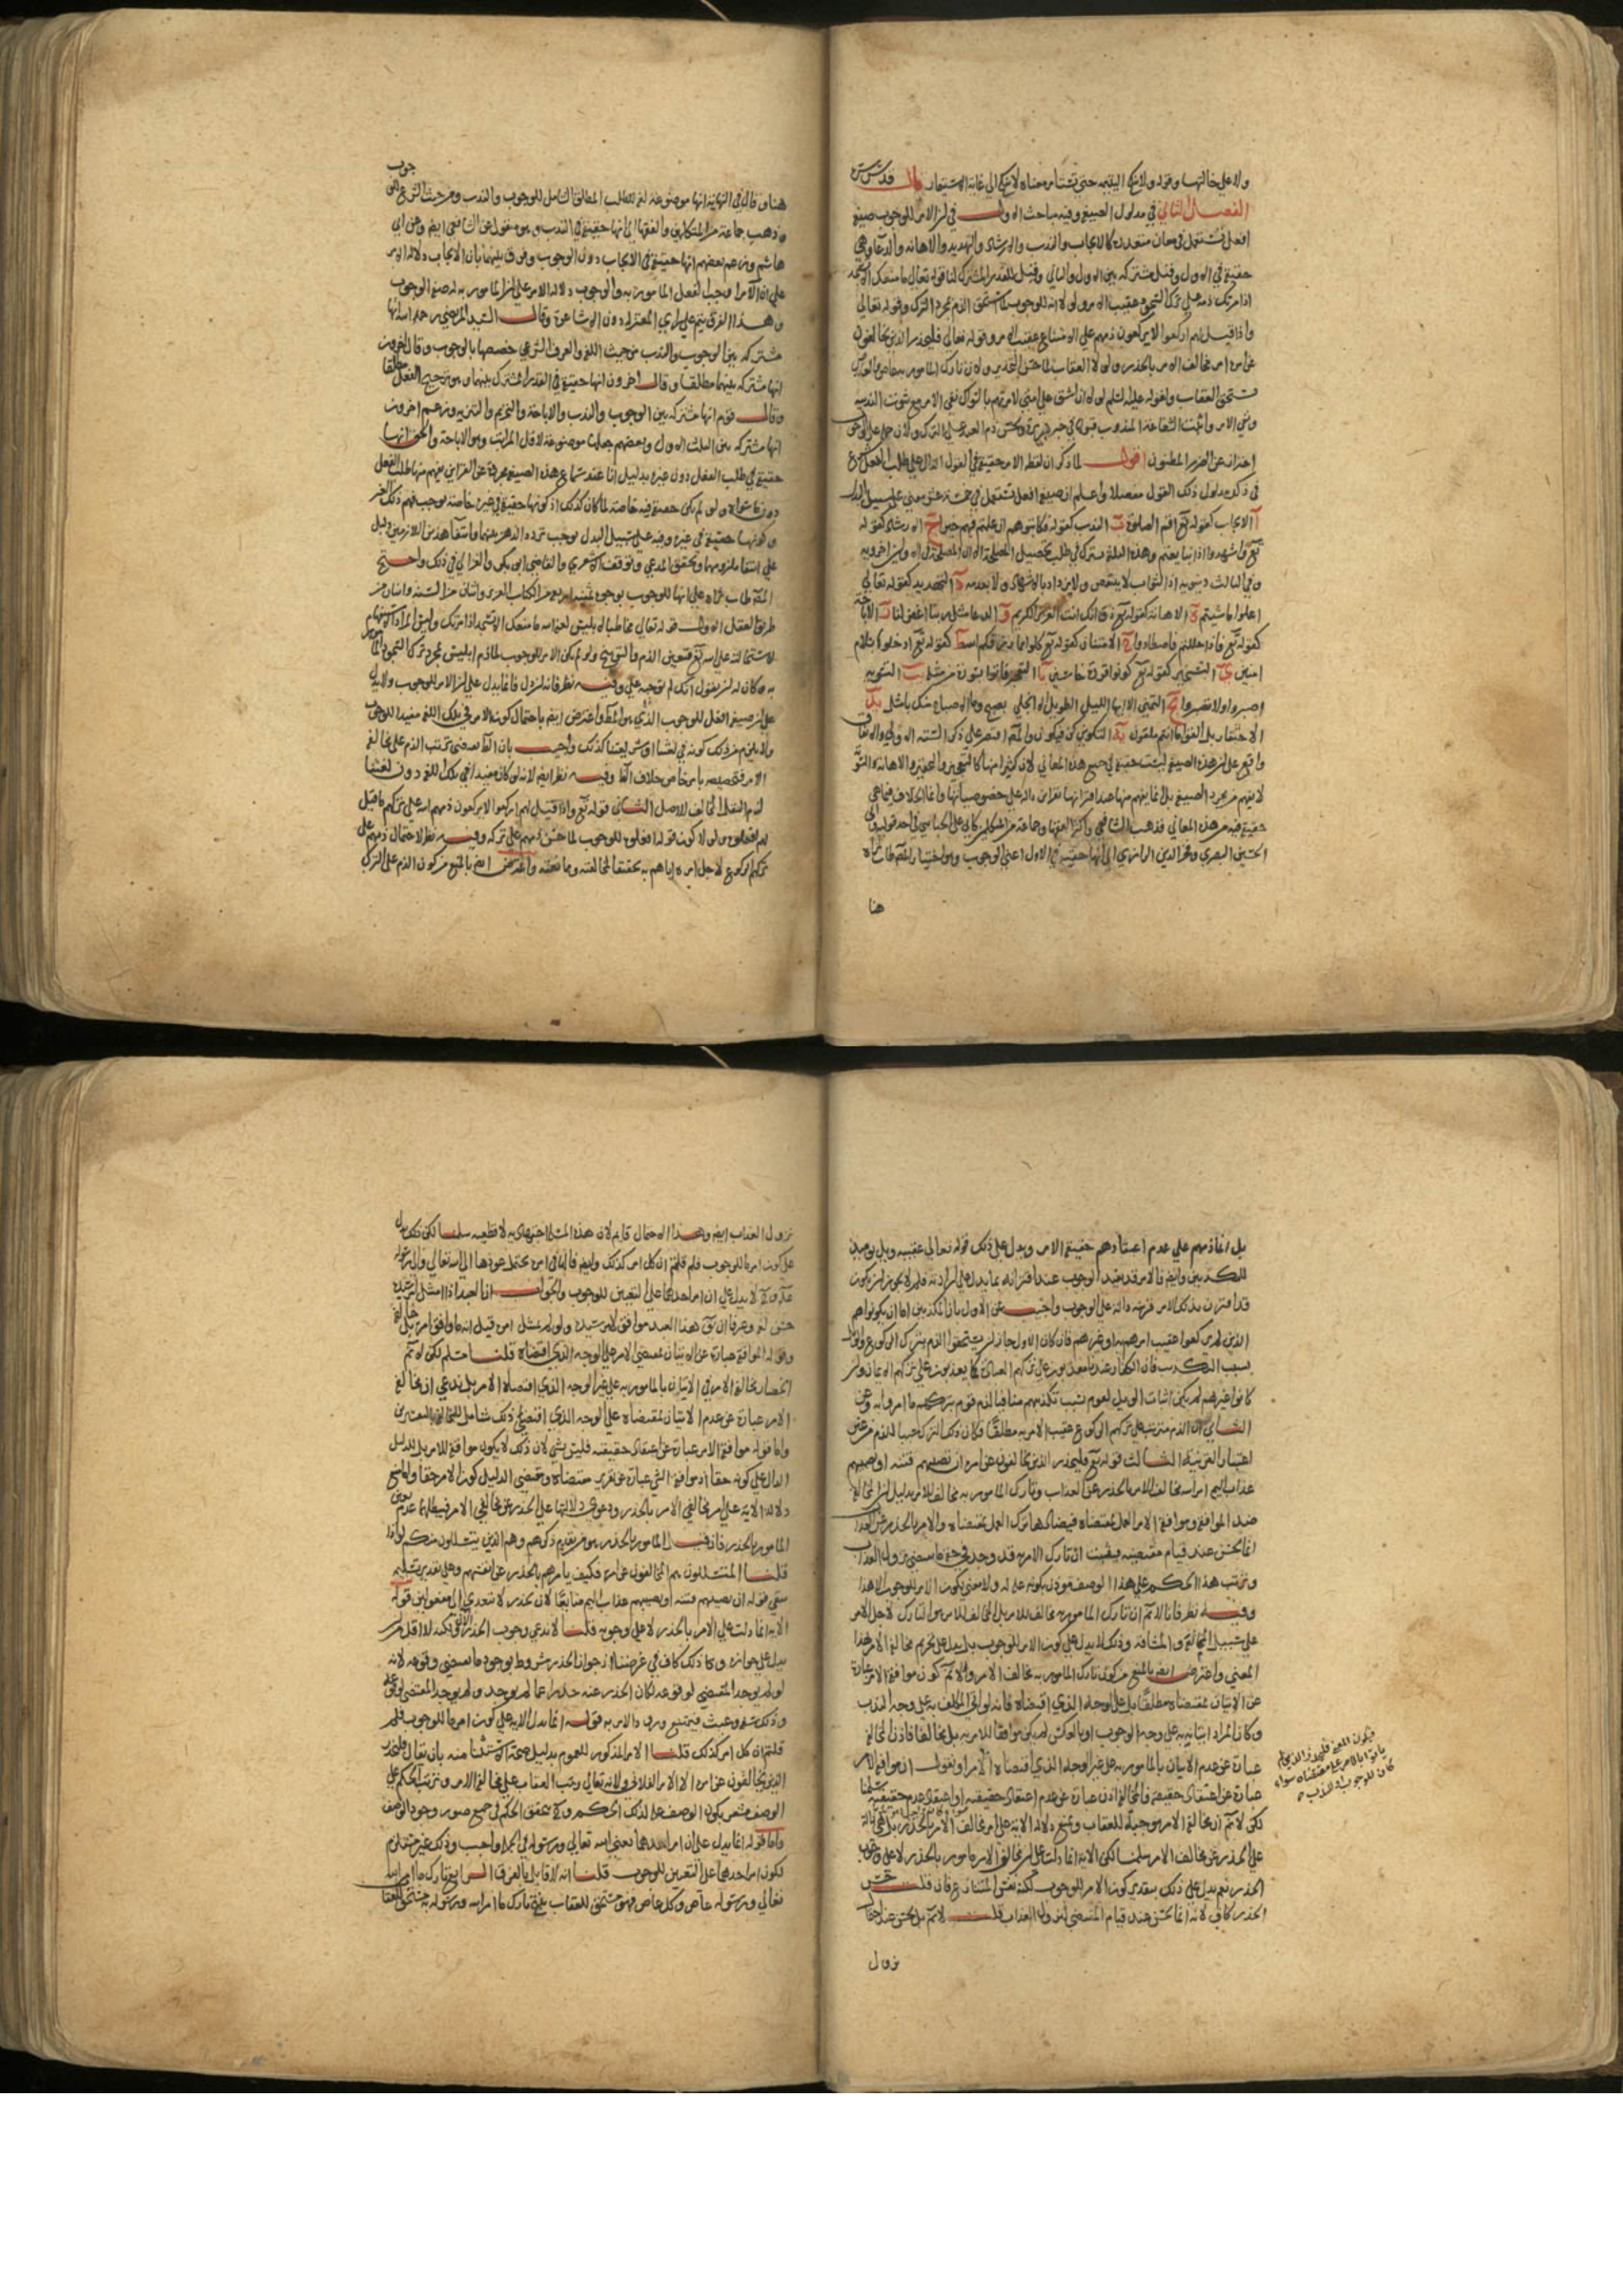 ولا على خالتها وقوله ولا تنكح اليتيمة حتى تستأمر معناه لا تنكح الى غاية الاستيمار قال قدس سره
الفصل الثاني في مدلول الصيغة وفيه مباحث الاول في ان الامر للوجوب صيغة
افعل تستعمل في معان متعددة كالايجاب والندب والارشاد والتهديد والاهانة والدعاء وهي
حقيقة في الاول وقيل مشتركة بين الاول والثاني وقيل للقدر المشترك لنا قوله تعالى ما منعك الا تسجد
اذ امرتك ذمه على ترك السجود عقيب الامر ولولا انه للوجوب لما استحق الذم بمجرد الترك وقوله تعالى
واذا قيل لهم اركعوا لا يركعون ذمهم على الامتناع عقيب الامر وقوله تعالى فليحذر الذين يخالفون
عن امره امر مخالف الامر بالحذر ولولا العقاب لما حسن التحذير ولان تارك المامور به عاص والعاصي
يستحق العقاب ولقوله عليه السلم لولا ان اشق على امتي لامرتهم بالسواك نفى الامر مع ثبوت الندبية
ونفي الامر واثبت الشفاعة المندوب قبولها في خبر بريرة ولحسن ذم العبد على الترك ولان حمله على الوجوب
احتراز عن الضرر المظنون اقول لما ذكر ان لفظ الامر حقيقة في القول الدال على طلب الفعل شرع
في ذكر مدلول ذلك القول مفصلا واعلم ان صيغة افعل تستعمل في خمسة عشر معنى على سبيل البدل
آ الايجاب كقوله تع اقم الصلوة ب الندب كقوله فكاتبوهم ان علمتم فيهم خيرا ج الارشاد كقوله
تع واشهدوا اذا تبايعتم وهذه الثلثة مشترك في طلب تحصيل المصلحة الا ان المصلحة في الاولين اخروية
وفي الثالث دنيوية اذ الثواب لا ينتقص ولا يزداد بالاشهاد ولا بعدمه د التهديد كقوله تعالى
اعملوا ما شيتم ه الاهانة كقوله تع ذق انك انت العزيز الكريم و الدعا مثل ربنا اغفر لنا ز الاباحة
كقوله تع فاذا حللتم فاصطادوا ح الامتنان كقوله تع كلوا مما رزقكم الله ط كقوله تع ادخلوها بسلام
امنين ي التسخير كقوله تع كونوا قردة خاسئين يا التعجيز فاتوا بسورة من مثله يب التسوية
اصبروا اولا تصبروا يج التمني الا ايها الليل الطويل الا انجلي بصبح وما الاصباح منك بامثل يد
الاحتقار بل القوا ما انتم ملقون يه التكوين كن فيكون والمصنف اقتصر على ذكر الستة الاولى والاتفاق
واقع على ان هذه الصيغة ليست حقيقة في جميع هذه المعاني لان كثيرا منها كالتسخير والتعجيز والاهانة والتسوية
لا يفهم من مجرد الصيغة بل انما يفهم منها عند اقترانها بقراين دالة على خصوصياتها وانما الخلاف فيما هي
حقيقة فيه من هذه المعاني فذهب الشافعي واكثر الفقها وجماعة من المتكلمين كابي علي الجبائي في احد قوليه وابي
الحسين البصري وفخر الدين الرازي الى انها حقيقة في الاول اعني الوجوب وهو اختيار المصنف طاب ثراه
هنا
هنا وقال في النهاية انها موضوعة لغة للطلب المطلق الشامل للوجوب والندب ومن حيث الشرع للوجوب
وذهب جماعة من المتكلمين والفقها الى انها حقيقة في الندب وهو منقول عن الشافعي ايضا وعن ابي
هاشم وزعم بعضهم انها حقيقة في الايجاب دون الوجوب وفرق بينهما بان الايجاب دلالة الامر
على ان الآمر اوجب الفعل المامور به والوجوب دلالة الامر على ان المامور به له صفة الوجوب
وهذا الفرق يتم على راي المعتزلة دون الاشاعرة وقال السيد المرتضى رحمه الله انها
مشتركة بين الوجوب والندب من حيث اللغة والعرف الشرعي خصصها بالوجوب وقال اخرون
انها مشتركة بينهما مطلقا وقال اخرون انها حقيقة في القدر المشترك بينهما وهو ترجيح الفعل مطلقا
وقال قوم انها مشتركة بين الوجوب والندب والاباحة والتحريم والتنزيه وزعم اخرون
انها مشتركة بين الثلث الاول وبعضهم جعلها موضوعة لاقل المراتب وهو الاباحة والحق انها
حقيقة في طلب الفعل دون غيره بدليل انا عند سماع هذه الصيغة مجردة عن القراين نفهم منها طلب الفعل
وكونها حقيقة في غيره وفيه على سبيل البدل يوجب تردد الذهن بينهما وانتفا هذين اللازمين دليل
على انتفا ملزومهما وتحقق المدعى وتوقف الاشعري والقاضي ابو بكر والغزالي في ذلك واحتج
المصنف طاب ثراه على انها للوجوب بوجوه
طريق العقل الاول قوله تعالى مخاطبا لابليس لعنه الله ما منعك الا تسجد اذ امرتك وليس المراد الاستفهام
لاستحالته على الله تع فتعين الذم والتوبيخ ولو لم يكن الامر للوجوب لما ذم ابليس بمجرد ترك السجود المامور
به وكان له ان يقول انك لم توجبه علي وفيه نظر فانه لو دل فانما يدل على ان الامر للوجوب ولا يدل
على ان صيغة افعل للوجوب الذي هو المط واعترض ايضا باحتمال كون الامر في تلك اللغة مفيدا للوجوب
ولا يلزم من ذلك كونه في لغتنا كذلك واجيب بان الظاهر يقتضي ترتب الذم على مخالفة
الامر فتخصيصه بامر خاص خلاف الظ وفيه نظر ايضا لانه لو كان مفيدا في تلك اللغة دون لغتنا
لزم النقل المخالف للاصل الثاني قوله تع واذا قيل لهم اركعوا لا يركعون ذمهم الله على تركهم ما قيل
لهم افعلوه ولولا كون قوله افعلوه للوجوب لما حسن ذمهم على تركه وفيه نظر لاحتمال ذمهم على
تركهم الركوع لاجل امره اياهم به تحقيقا لمخالفته وممانعته واعترض ايضا بالمنع من كون الذم على الترك
بل انما ذمهم على عدم اعتقادهم حقيقة الامر ويدل على ذلك قوله تعالى عقيبه ويل يومئذ
للمكذبين وايضا فالامر قد يفيد الوجوب عند اقترانه بما يدل على ارادته فلم لا يجوز ان يكون
قد اقترن بذلك الامر قرينة دالة على الوجوب واجيب عن الاول بان المكذبين اما ان يكونوا هم
الذين لم يركعوا عقيب امرهم به او غيرهم فان كان الاول جاز ان يستحقوا الذم بترك الركوع والويل
بسبب التكذيب فان الكفار عندنا معذبون على تركهم العبادة كما يعذبون على تركهم الايمان وان
كانوا غيرهم لم يكن اثبات الويل لقوم بسبب تكذيبهم منافيا لذم قوم بتركهم ما امروا به وعن
الثاني ان الذم مترتب على تركهم الركوع عقيب الامر به مطلقا فكان ذلك الترك سببا للذم من غير
اعتبار القرينة الثالث قوله تع فليحذر الذين يخالفون عن امره ان تصيبهم فتنة او يصيبهم
عذاب اليم امر الله مخالف الامر بالحذر عن العذاب وتارك المامور به مخالف للامر بدليل ان المخالفة
ضد الموافقة وموافقة الامر العمل بمقتضاه فيضادها ترك العمل بمقتضاه والامر بالحذر عن العذاب
انما يحسن عند قيام مقتضيه فيثبت ان تارك الامر به قد وجد في حقه ما يقتضي نزول العذاب
وترتب هذا الحكم على هذا الوصف مؤذن بكونه علة له ولا معنى لكون الامر للوجوب الا هذا
وفيه نظر فانا لا نم ان تارك المامور به مخالف للامر بل المخالف للامر هو التارك لاجل الامر
على سبيل المخالفة والمشاقة وذلك لا يدل على كون الامر للوجوب بل يدل على تحريم مخالفة الامر بهذا
المعنى واعترض ايضا بالمنع من كون تارك المامور به مخالف الامر ولا نم كون موافقة الامر عبارة
عن الاتيان بمقتضاه مطلقا بل على الوجه الذي اقتضاه فانه لو اتى المكلف به على وجه الندب
وكان المراد اتيانه به على وجه الوجوب او بالعكس لم يكن موافقا للامر به بل مخالفا فاذن المخالفة
عبارة عن عدم الاتيان بالمامور به على غير الوجه الذي اقتضاه الامر او نقول ان موافقة الامر
عبارة عن اعتقاد حقيقته فالمخالفة اذن عبارة عن عدم اعتقاد حقيقته او اعتقاد عدم حقيقته سلمنا
لكن لا نم ان مخالفة الامر موجبة للعقاب ونمنع دلالة الاية على امر مخالف الامر بالحذر بل هي دالة
على الحذر عن مخالف الامر سلمنا لكن الاية انما دلت على ان مخالف الامر مامور بالحذر لا على وجوب
الحذر نعم يدل على ذلك بتقدير كون الامر للوجوب لكنه نفس المتنازع فان قلت حسن
الحذر كاف لانه انما يحسن عند قيام المقتضي لنزول العذاب قلت لا نم بل يحسن عند احتمال
نزول
فيكون المعنى فليحذر الذين لم
ياتوا بالامر على مقتضاه سواء
كان للوجوب او للندب
نزول العذاب ايضا وهذا الاحتمال قايم لان هذه المسئلة اجتهادية لا قطعية سلمنا لكن ذلك يدل
على كون امره للوجوب فلم قلتم ان كل امر كذلك وايضا فالهاء في امره يحتمل عودها الى الله تعالى والى رسوله
لا يدل على ان امر احدهما على التعيين للوجوب والجواب ان العبد اذا امتثل امر سيده
حسن لغة وعرفا ان يق هذا العبد موافق لامر سيده ولو لم يمتثل امره قيل انه ما وافق امره بل خالفه
وقوله الموافقة عبارة عن الاتيان بمقتضى الامر على الوجه الذي اقتضاه قلنا مسلم لكن لا نم
انحصار مخالفة الامر في الاتيان بالمامور به على غير الوجه الذي اقتضاه الامر بل ندعي ان مخالفة
الامر عبارة عن عدم الاتيان بمقتضاه على الوجه الذي اقتضى ذلك شامل
واما قوله موافقة الامر عبارة عن اعتقاد حقيقته فليس بشي لان ذلك لا يكون موافقة للامر بل للدليل
الدال على كونه حقا اذ موافقة الشي عبارة عن تقرير مقتضاه ومقتضى الدليل كون الامر حقا واما منع
دلالة الاية على امر مخالفي الامر بالحذر ودعوى دلالتها على الحذر عن مخالفي الامر فيبطلها عدم تعين
المامور بالحذر فان قيل المامور بالحذر هو من تقدم ذكرهم وهم الذين يتسللون منكم لواذا
قلنا المتسللون هم المخالفون عن امره فكيف يامرهم بالحذر عن انفسهم وعلى تقدير تسليمه
يبقى قوله ان تصيبهم فتنة او يصيبهم عذاب اليم ضايعا لان يحذر لا يتعدى الى مفعولين قوله
الاية انما دلت على الامر بالحذر لا على وجوبه قلنا لا ندعي وجوب الحذر لكنه لا اقل من ان
يدل على جوازه وكان ذلك كاف في غرضنا اذ جواز الحذر مشروط بوجود ما يقتضي وقوعه لانه
لو لم يوجد المقتضي لوقوعه لكان الحذر عنه حذرا عما لم يوجد ولم يوجد المقتضي لوقوعه
وذلك سفه وعبث فيمتنع ورود الامر به قوله انما يدل الاية على كون امره للوجوب فلم
قلتم ان كل امر كذلك قلنا الامر المذكور للعموم بدليل صحة الاستثنا منه بان يقال فليحذر
الذين يخالفون عن امره الا الامر الفلاني ولانه تعالى رتب العقاب على مخالفة الامر وترتب الحكم على
الوصف مشعر بكون الوصف علة لذلك الحكم فيتحقق الحكم في جميع صور وجود الوصف
واما قوله انما يدل على ان امر احدهما يعني الله تعالى ورسوله واجب وذلك غير مستلزم
لكون امر احدهما على التعيين للوجوب قلنا انه لا قايل بالفرق الرابع تارك ما امر الله
تعالى ورسوله عاص وكل عاص فهو مستحق للعقاب ينتج تارك ما امر الله ورسوله به مستحق للعقاب